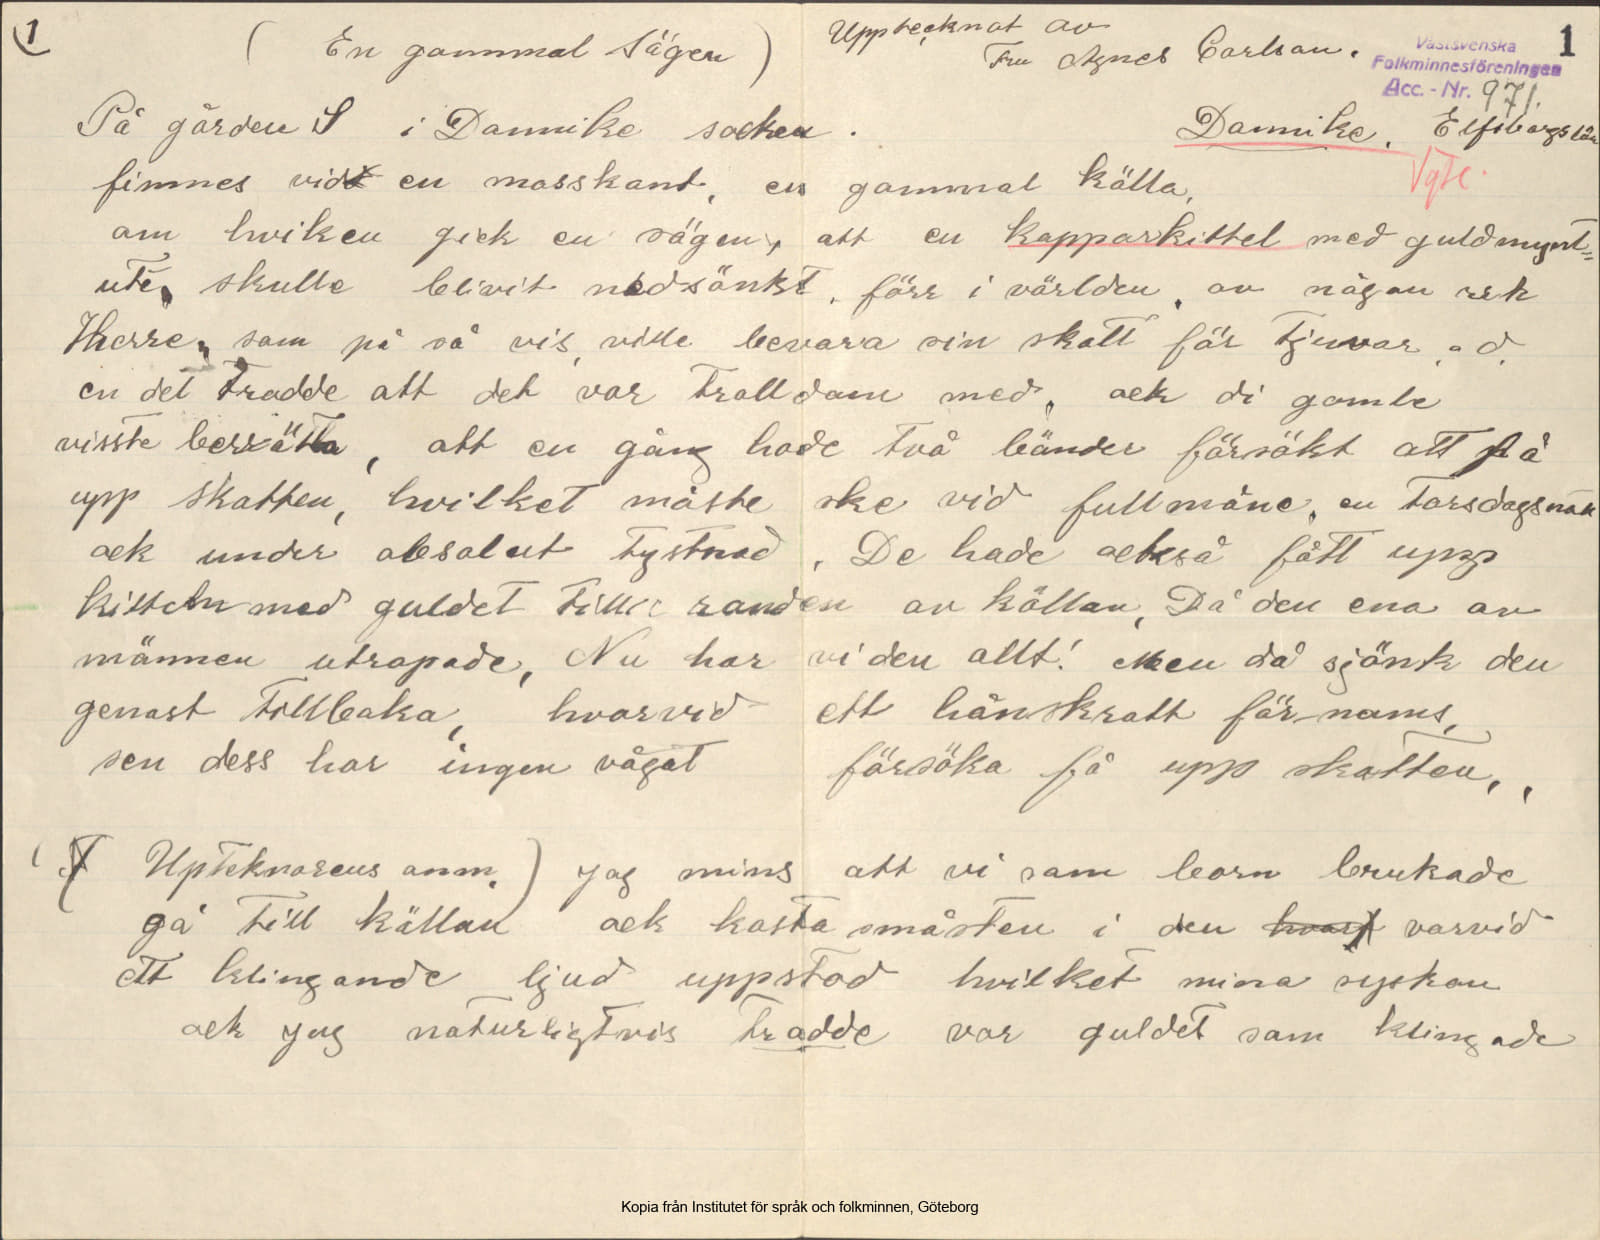 1 ( En gammal Sägen ) Upptecknat av 1
Fru Agnes Carlson.
Västsvenska
Folkminnesföreningen
Acc. - Nr. 971.
På gården S i Dannike socken. Dannike, Elfsborgs län
Vgtl.
finnes vid en mosskant, en gammal källa,
om hvilken gick en sägen, att en kopparkittel med guldmynt=
uti, skulle blivit nedsänkt, förr i världen, av någon rik
Herre, som på så vis, ville bevara sin skatt för tjuvar o d.
en del trodde att det var trolldom med, ock di gamle
visste berrätta, att en gång hade två bönder försökt att få
upp skatten, hvilket måste ske vid fullmåne, en torsdagsnatt
ock under absolut tystnad. De hade också fått upp
kitteln med guldet till randen av källan, Då den ena av
männen utropade, Nu har vi den allt! Men då sjönk den
genast tillbaka, hvarvid ett hånskratt förnams,
sen dess har ingen vågat försöka få upp skatten,,
( Upteknarens anm. ) jag mins att vi som barn brukade
gå till källan ock kasta småsten i den varvid
ett klingande ljud uppstod hvilket mina syskon
ock jag naturligtvis trodde var guldet som klingade
Kopia från Institutet för språk och folkminnen, Göteborg